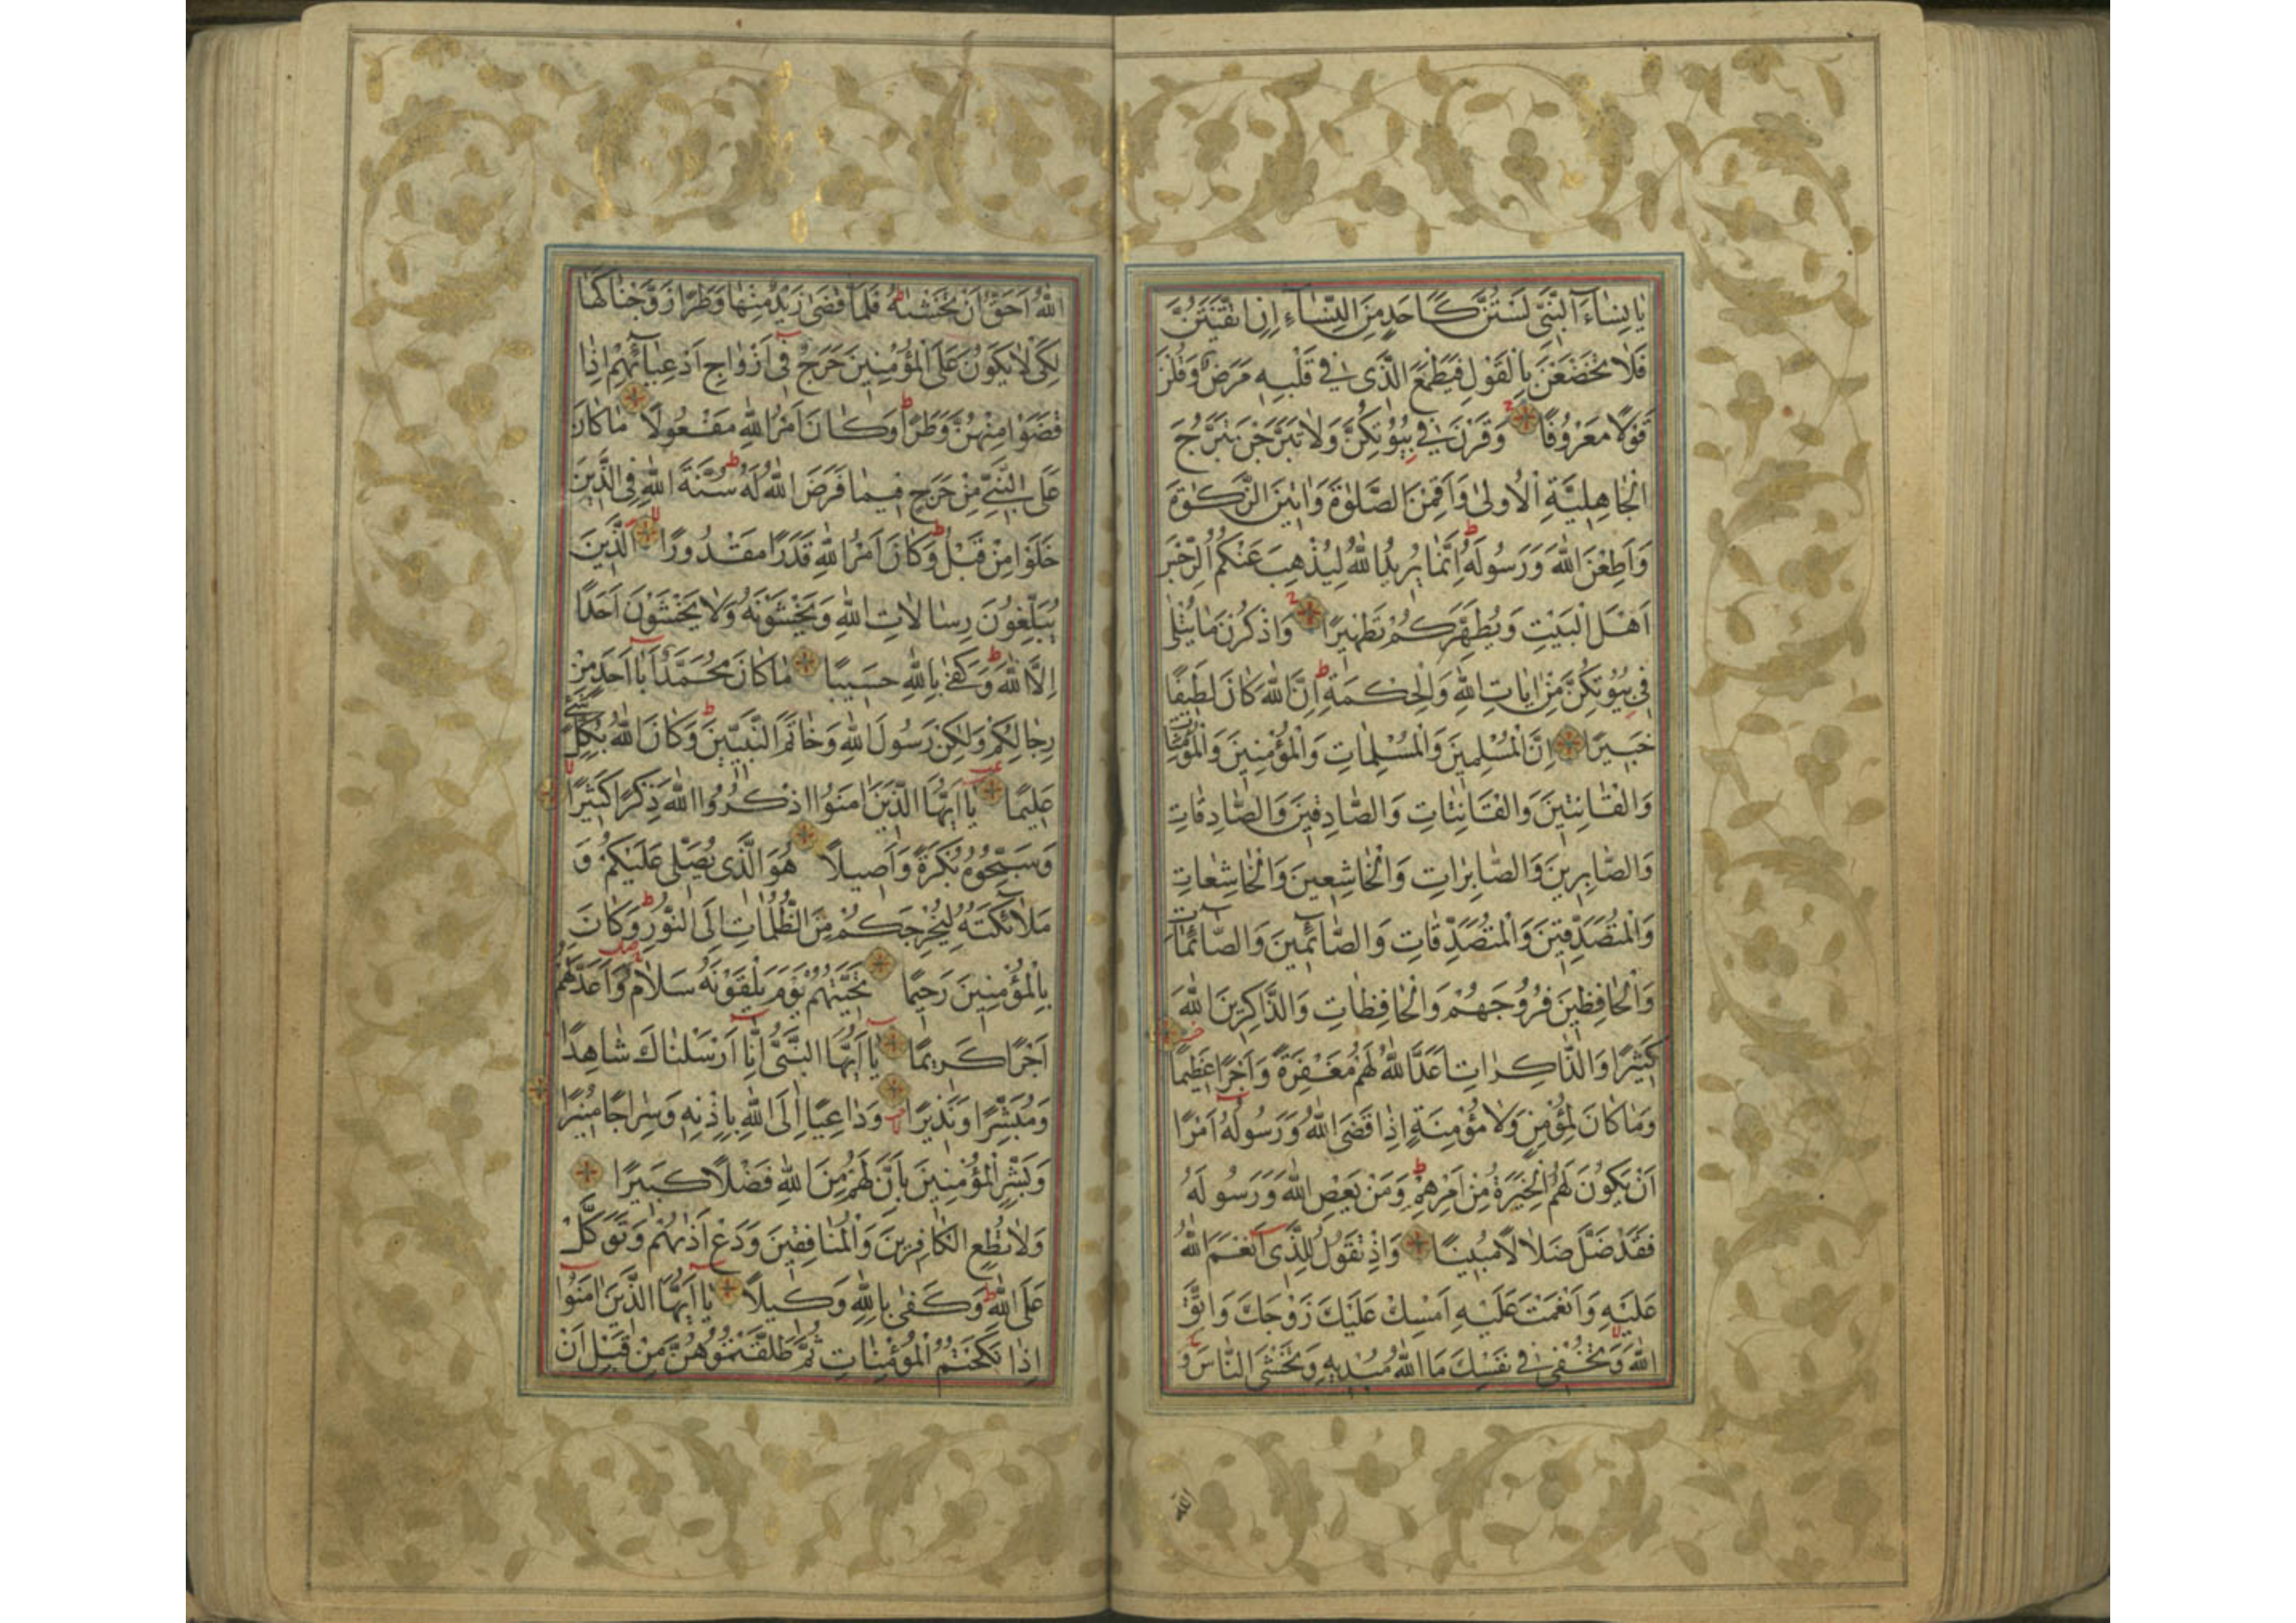 يا نِسٰاءَ النَّبِىِّ لَسْتُنَّ كَاَحَدٍ مِنَ النِّسٰاءِ اِنِ اتَّقَيْتُنَّ
فَلٰا تَخْضَعْنَ بِالْقَوْلِ فَيَطْمَعَ الَّذى فى قَلْبِهِ مَرَضٌ وَقُلْنَ
قَوْلًا مَعْرُوفًا وَقَرْنَ فى بُيُوتِكُنَّ وَلٰا تَبَرَّجْنَ تَبَرُّجَ
الْجٰاهِلِيَّةِ الْاُولىٰ وَاَقِمْنَ الصَّلٰوةَ وَاٰتينَ الزَّكٰوةَ
وَاَطِعْنَ اللّٰهَ وَرَسُولَهُ اِنَّمٰا يُريدُ اللّٰهُ لِيُذْهِبَ عَنْكُمُ الرِّجْسَ
اَهْلَ الْبَيْتِ وَيُطَهِّرَكُمْ تَطْهيرًا وَاذْكُرْنَ مٰا يُتْلٰى
فى بُيُوتِكُنَّ مِنْ اٰيٰاتِ اللّٰهِ وَالْحِكْمَةِ اِنَّ اللّٰهَ كٰانَ لَطيفًا
خَبيرًا اِنَّ الْمُسْلِمينَ وَالْمُسْلِمٰاتِ وَالْمُؤْمِنينَ وَالْمُؤْمِنٰاتِ
وَالْقٰانِتينَ وَالْقٰانِتٰاتِ وَالصّٰادِقينَ وَالصّٰادِقٰاتِ
وَالصّٰابِرينَ وَالصّٰابِرٰاتِ وَالْخٰاشِعينَ وَالْخٰاشِعٰاتِ
وَالْمُتَصَدِّقينَ وَالْمُتَصَدِّقٰاتِ وَالصّٰائِمينَ وَالصّٰائِمٰاتِ
وَالْحٰافِظينَ فُرُوجَهُمْ وَالْحٰافِظٰاتِ وَالذّٰاكِرينَ اللّٰهَ
كَثيرًا وَالذّٰاكِرٰاتِ اَعَدَّ اللّٰهُ لَهُمْ مَغْفِرَةً وَاَجْرًا عَظيمًا
وَمٰا كٰانَ لِمُؤْمِنٍ وَلٰا مُؤْمِنَةٍ اِذٰا قَضَى اللّٰهُ وَرَسُولُهُ اَمْرًا
اَنْ يَكُونَ لَهُمُ الْخِيَرَةُ مِنْ اَمْرِهِمْ وَمَنْ يَعْصِ اللّٰهَ وَرَسُولَهُ
فَقَدْ ضَلَّ ضَلٰالًا مُبينًا وَاِذْ تَقُولُ لِلَّذى اَنْعَمَ اللّٰهُ
عَلَيْهِ وَاَنْعَمْتَ عَلَيْهِ اَمْسِكْ عَلَيْكَ زَوْجَكَ وَاتَّقِ
اللّٰهَ وَتُخْفى فى نَفْسِكَ مَا اللّٰهُ مُبْديهِ وَتَخْشَى النّٰاسَ وَ
اللّٰه
اللّٰهُ اَحَقُّ اَنْ تَخْشٰيهُ فَلَمّٰا قَضٰى زَيْدٌ مِنْهٰا وَطَرًا زَوَّجْنٰاكَهٰا
لِكَىْ لٰا يَكُونَ عَلَى الْمُؤْمِنينَ حَرَجٌ فى اَزْوٰاجِ اَدْعِيٰائِهِمْ اِذٰا
قَضَوْا مِنْهُنَّ وَطَرًا وَكٰانَ اَمْرُ اللّٰهِ مَفْعُولًا مٰا كٰانَ
عَلَى النَّبِىِّ مِنْ حَرَجٍ فيمٰا فَرَضَ اللّٰهُ لَهُ سُنَّةَ اللّٰهِ فِى الَّذينَ
خَلَوْا مِنْ قَبْلُ وَكٰانَ اَمْرُ اللّٰهِ قَدَرًا مَقْدُورًا الَّذينَ
يُبَلِّغُونَ رِسٰالٰاتِ اللّٰهِ وَيَخْشَوْنَهُ وَلٰا يَخْشَوْنَ اَحَدًا
اِلَّا اللّٰهَ وَكَفٰى بِاللّٰهِ حَسيبًا مٰا كٰانَ مُحَمَّدٌ اَبٰا اَحَدٍ مِنْ
رِجٰالِكُمْ وَلٰكِنْ رَسُولَ اللّٰهِ وَخٰاتَمَ النَّبِيّينَ وَكٰانَ اللّٰهُ بِكُلِّ شَىْءٍ
عَليمًا يٰا اَيُّهَا الَّذينَ اٰمَنُوا اذْكُرُوا اللّٰهَ ذِكْرًا كَثيرًا
وَسَبِّحُوهُ بُكْرَةً وَاَصيلًا هُوَ الَّذى يُصَلّى عَلَيْكُمْ وَ
مَلٰائِكَتُهُ لِيُخْرِجَكُمْ مِنَ الظُّلُمٰاتِ اِلَى النُّورِ وَكٰانَ
بِالْمُؤْمِنينَ رَحيمًا تَحِيَّتُهُمْ يَوْمَ يَلْقَوْنَهُ سَلٰامٌ وَاَعَدَّ لَهُمْ
اَجْرًا كَريمًا يٰا اَيُّهَا النَّبِىُّ اِنّٰا اَرْسَلْنٰاكَ شٰاهِدًا
وَمُبَشِّرًا وَنَذيرًا وَدٰاعِيًا اِلَى اللّٰهِ بِاِذْنِهِ وَسِرٰاجًا مُنيرًا
وَبَشِّرِ الْمُؤْمِنينَ بِاَنَّ لَهُمْ مِنَ اللّٰهِ فَضْلًا كَبيرًا
وَلٰا تُطِعِ الْكٰافِرينَ وَالْمُنٰافِقينَ وَدَعْ اَذٰيهُمْ وَتَوَكَّلْ
عَلَى اللّٰهِ وَكَفٰى بِاللّٰهِ وَكيلًا يٰا اَيُّهَا الَّذينَ اٰمَنُوا
اِذٰا نَكَحْتُمُ الْمُؤْمِنٰاتِ ثُمَّ طَلَّقْتُمُوهُنَّ مِنْ قَبْلِ اَنْ